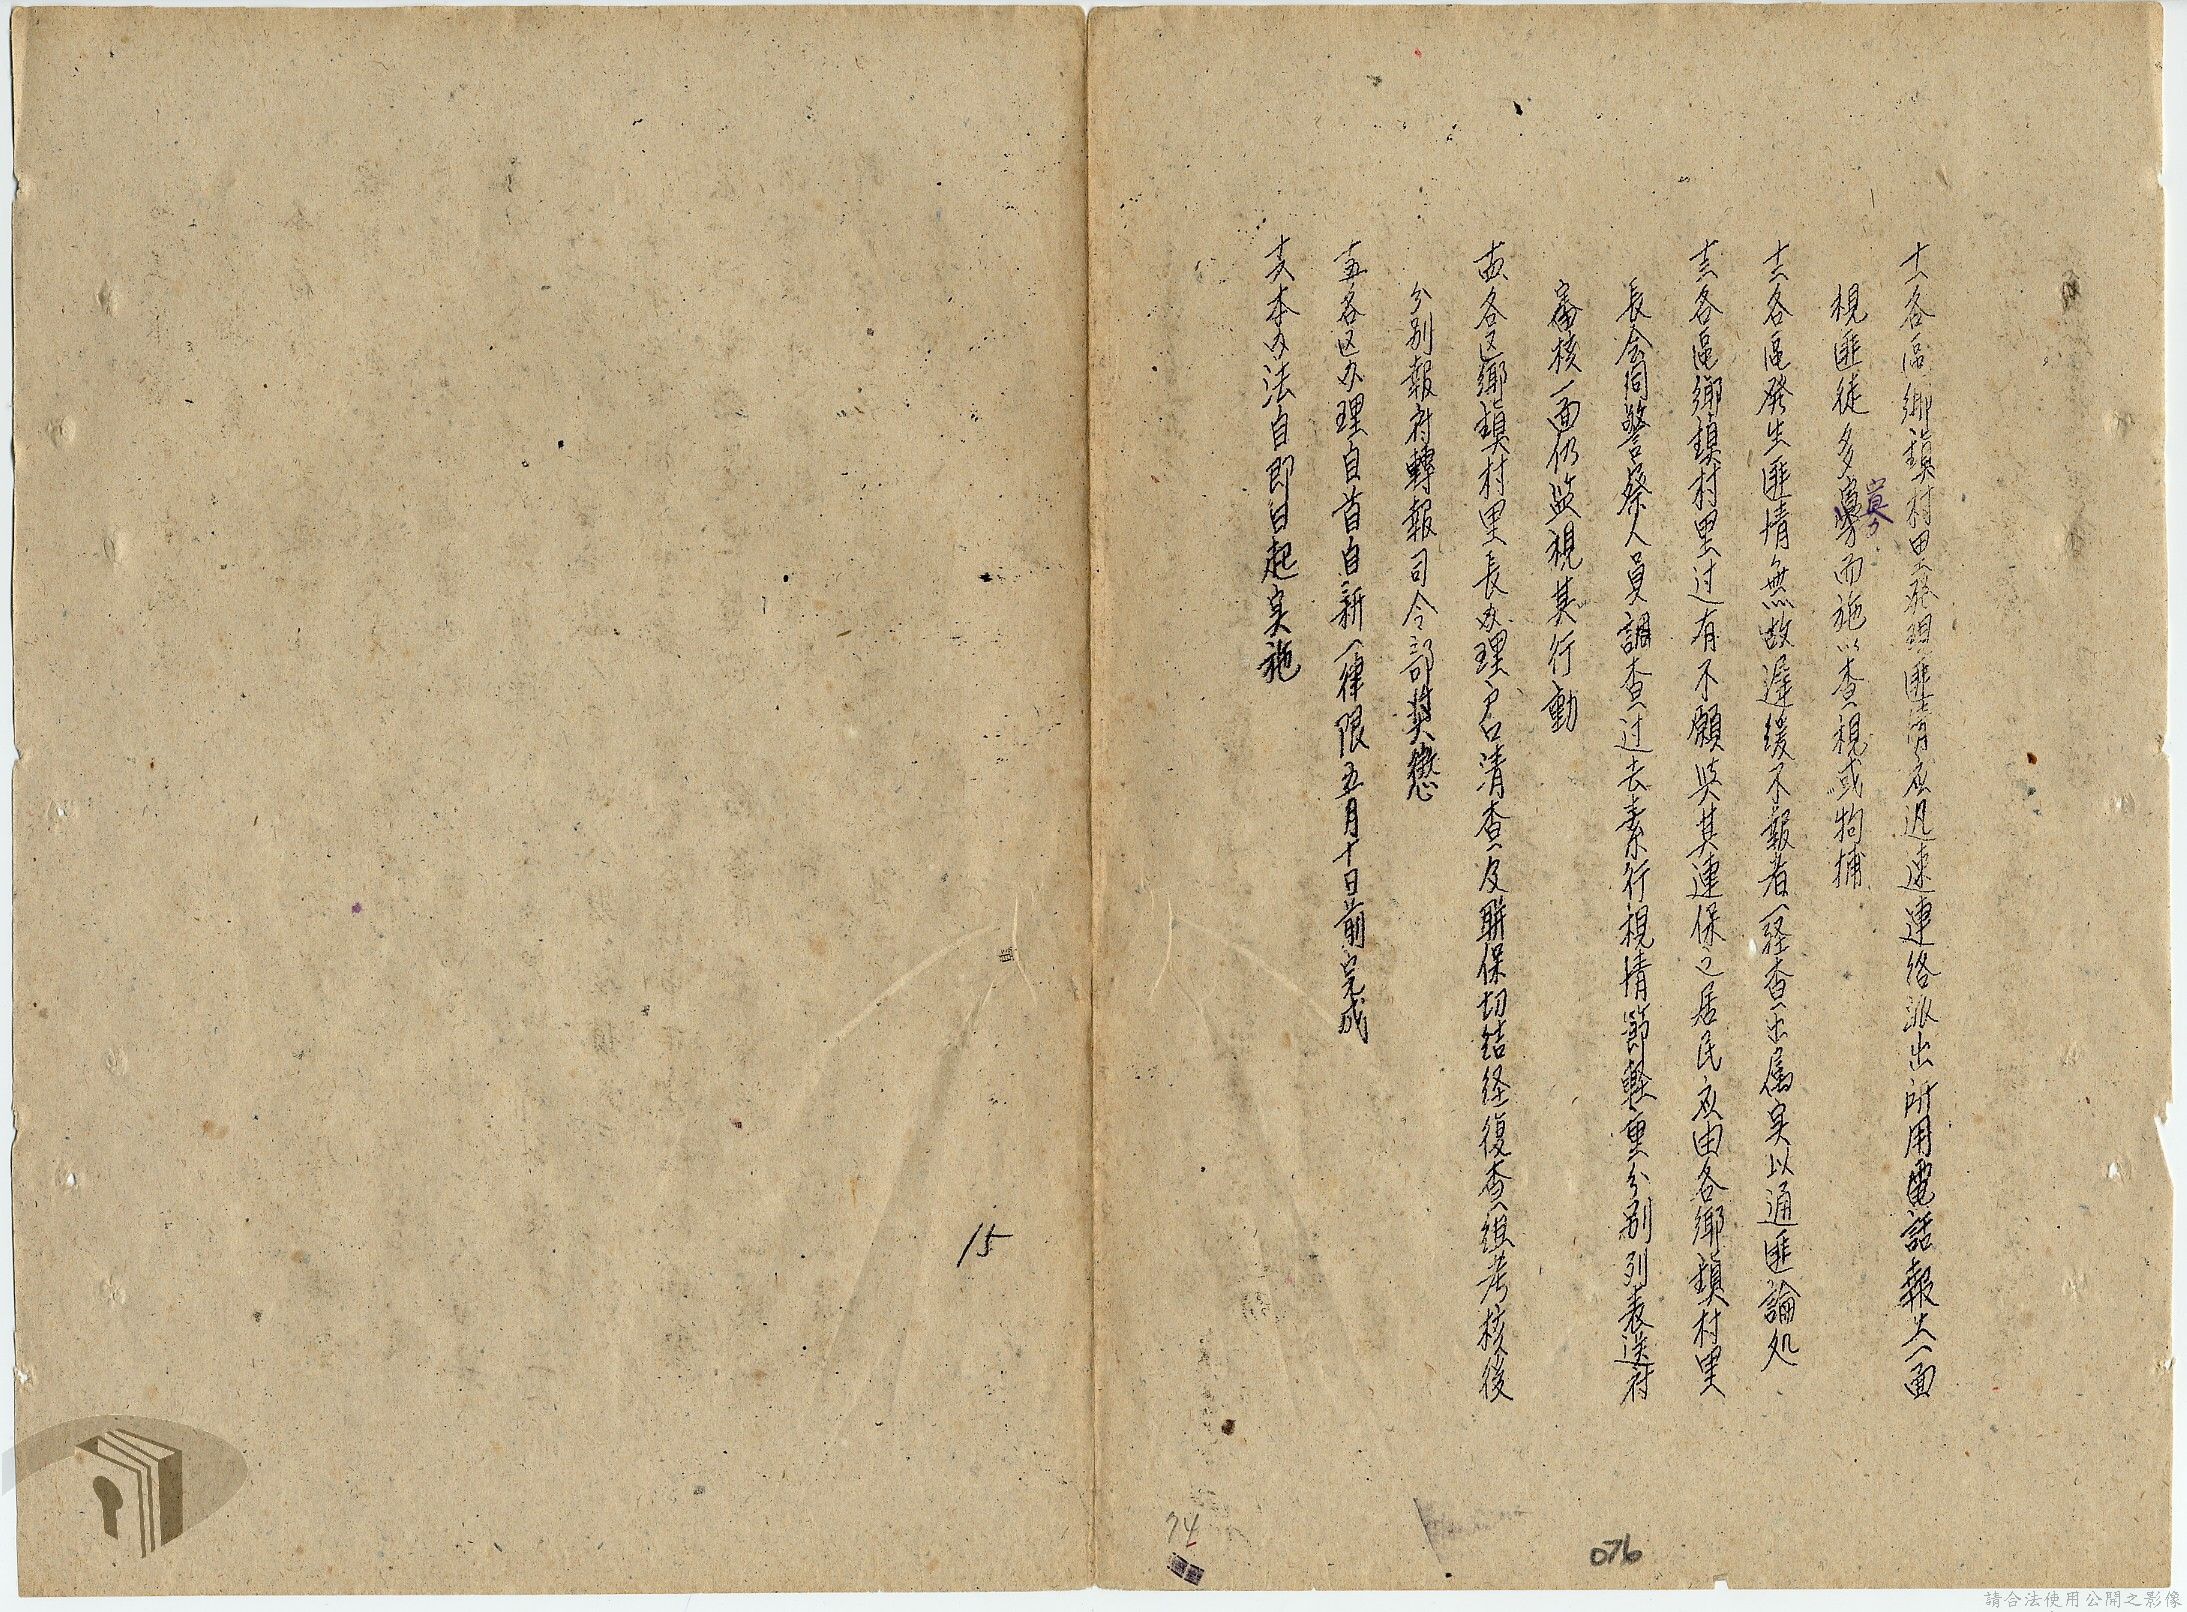 十一各區鄉鎮村里發現匪情应迅速連絡派出所用電話報告一面
視匪徒多寡而施以查視或拘捕
寡
十二各區發生匪情無故遲缓不報者一経查出属実以通匪論処
十三各區鄉鎮村里过有不願與其連保之居民应由各鄉鎮村里
長会同警察人員調查过去素行視情節軽重分别列表送府
審核一面仍监視其行動
十四各区鄉鎮村里長办理户口清查及聯保切结経復查組考核後
分别報府轉報司令部獎懲
十五各区办理自首自新一律限五月十日前完成
十六本办法自即日起実施
15
74
076
請合法使用公開之影像